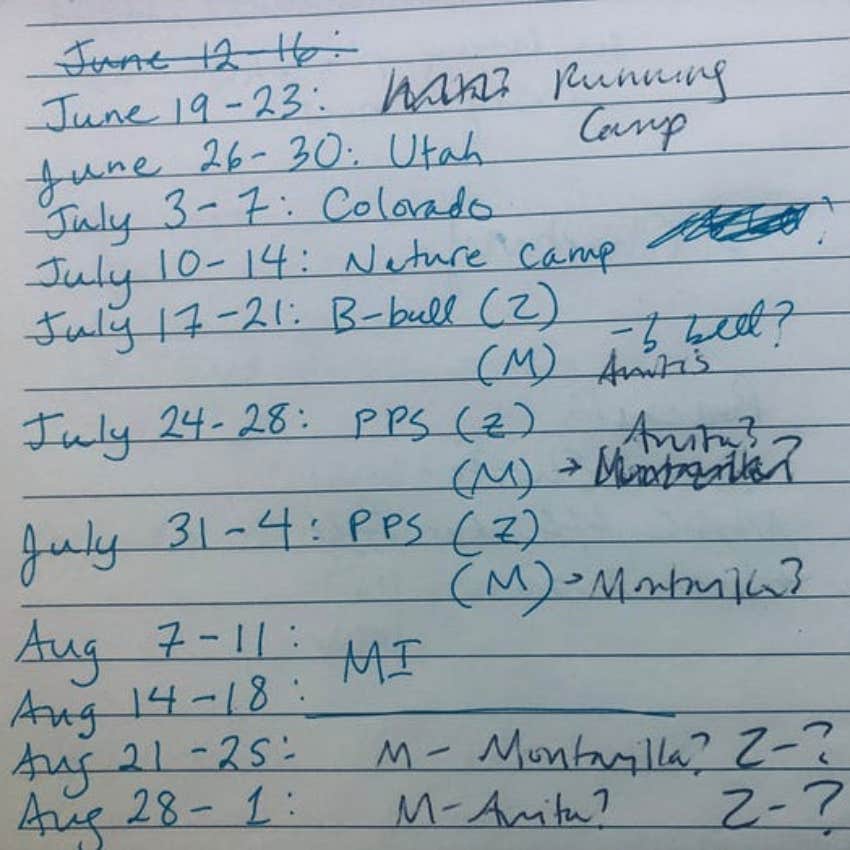 June 12-16:
June 19-23: Running
Camp
June 26-30: Utah
July 3-7: Colorado
July 10-14: Nature Camp
July 17-21: B-ball (Z)
(M)
July 24-28: PPS (Z) Anita?
(M) → Montavilla?
July 31-4: PPS (Z)
(M) → Montavilla?
Aug 7-11:
MI
Aug 14-18:
Aug 21-25: M- Montavilla? Z-?
Aug 28-1: M-Anita? Z-?